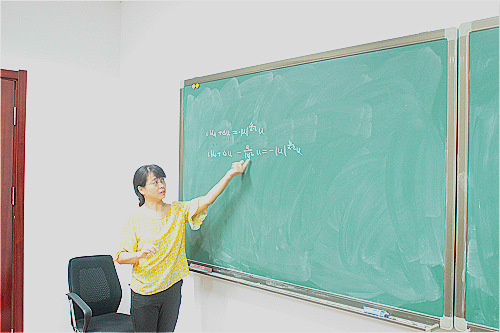 iu_t + Δu = -|u|^{4/(d-2)} u
iu_t + Δu - a/|x|^2 u = -|u|^{4/(d-2)} u